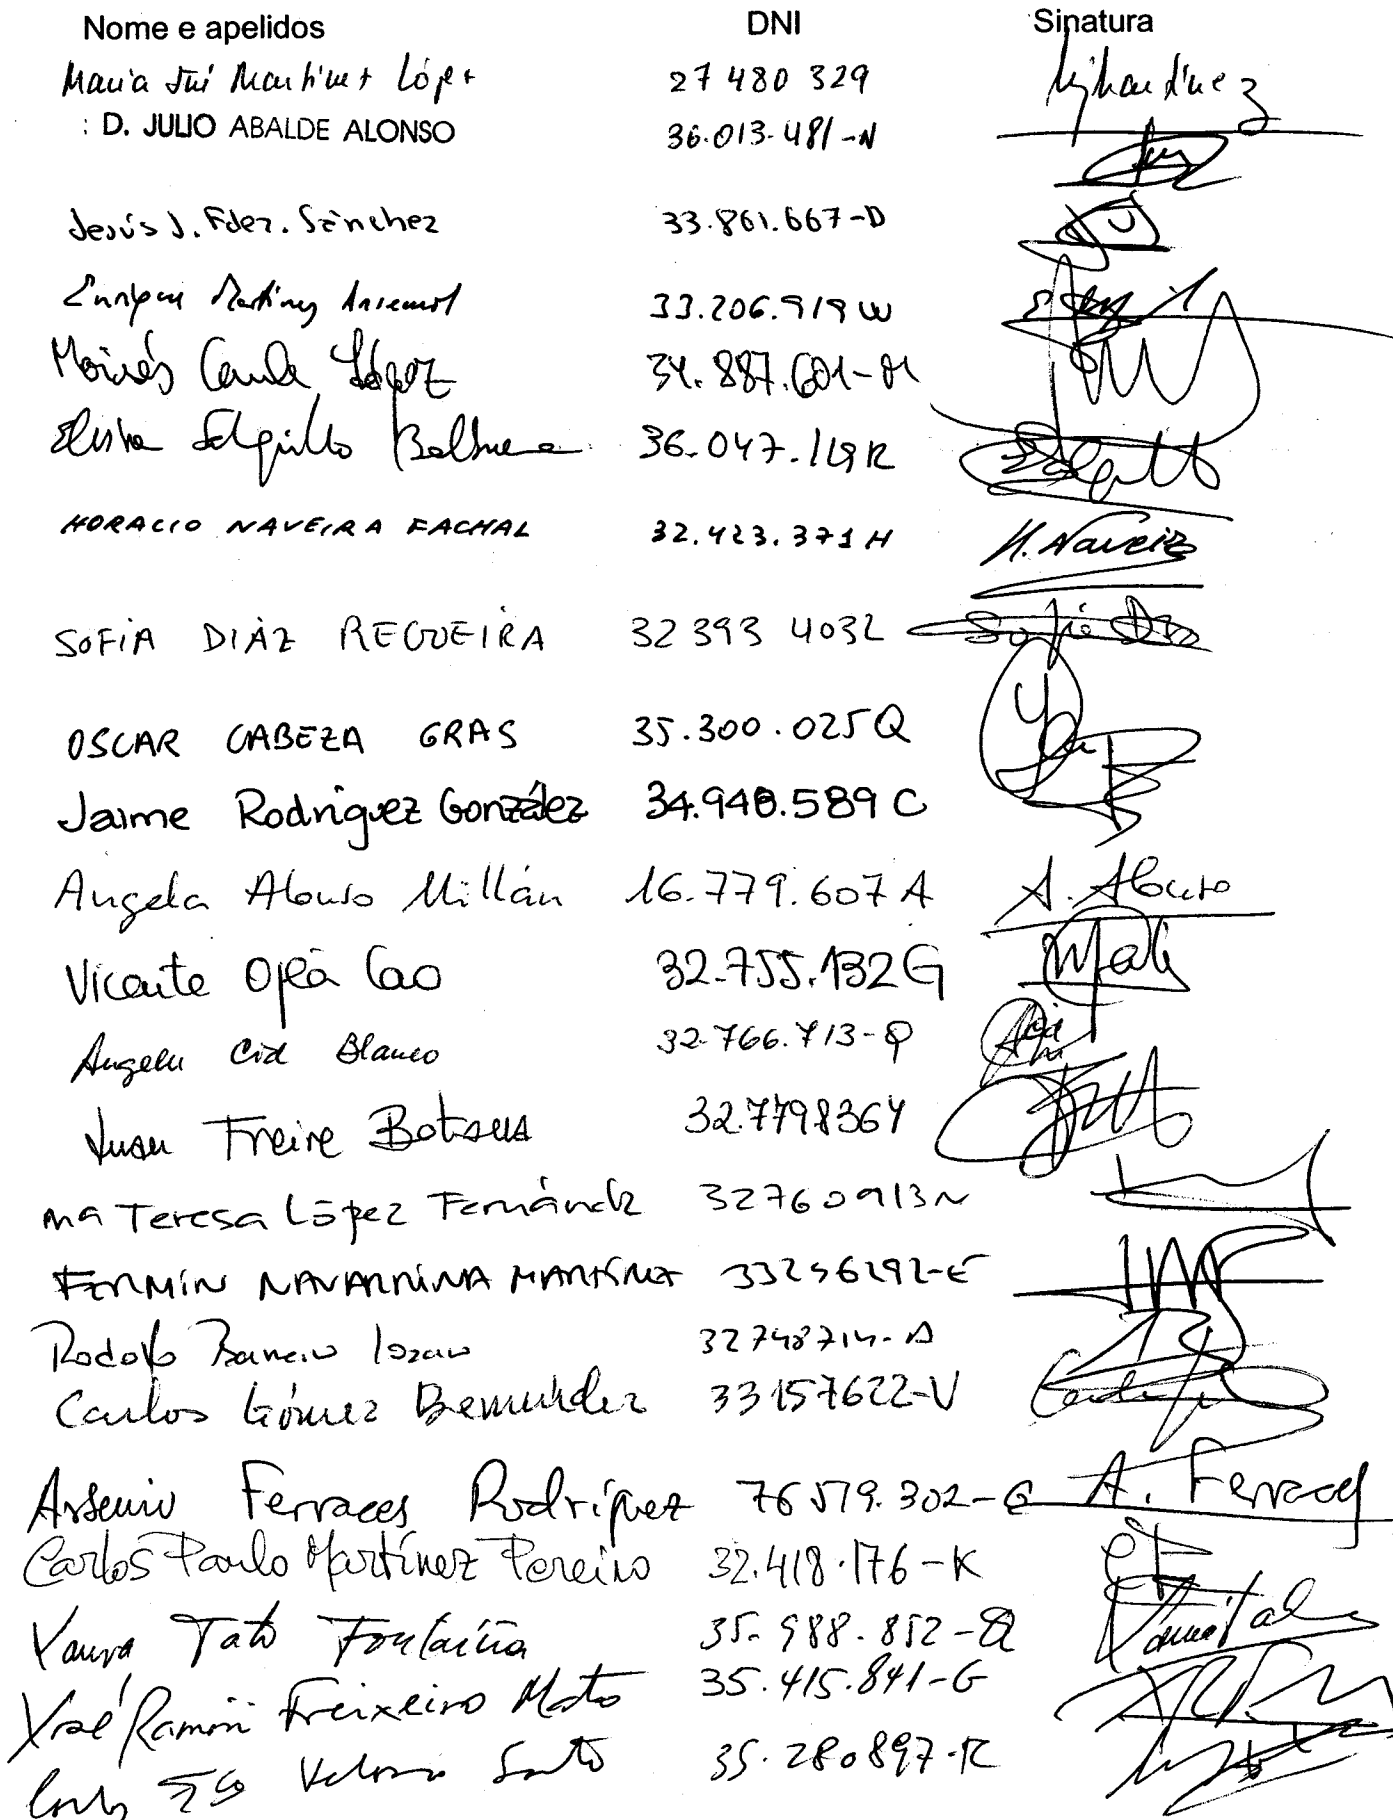 Nome e apelidos DNI Sinatura
María José Martínez López 27 480 329 Mj Martínez
: D. JULIO ABALDE ALONSO 36.013.481-N
Jesús J. Fdez. Sánchez 33.861.667-D
Enrique Martínez Ansemil 33.206.919 W
Moisés Canle López 34.887.601-M
Elvira Salgueiro Balbuena 36.047.119R
HORACIO NAVEIRA FACHAL 32.423.371H H. Naveira
SOFÍA DÍAZ REGUEIRA 32 393 403L Sofía Díaz
OSCAR CABEZA GRAS 35.300.025Q
Jaime Rodríguez González 34.940.589 C
Angela Alonso Millán 16.779.607 A A. Alonso
Vicente Ojea Cao 32.755.132G
Angela Cid Blanco 32.766.713-Q
Juan Freire Botana 32.779836Y
Mª Teresa López Fernández 32760913N
FERMÍN NAVARRINA MARTÍNEZ 33256292-E
Rodolfo Barreiro Lozano 32748714-A
Carlos Gómez Bermúdez 33157622-V
Arsenio Ferraces Rodríguez 76519.302-G A. Ferraces
Carlos Paulo Martínez Pereiro 32.418.176-K
Laura Tato Fontaíña 35.988.852-Q Laura Tato
Xosé Ramón Freixeiro Mato 35.415.841-G
35.280897-R